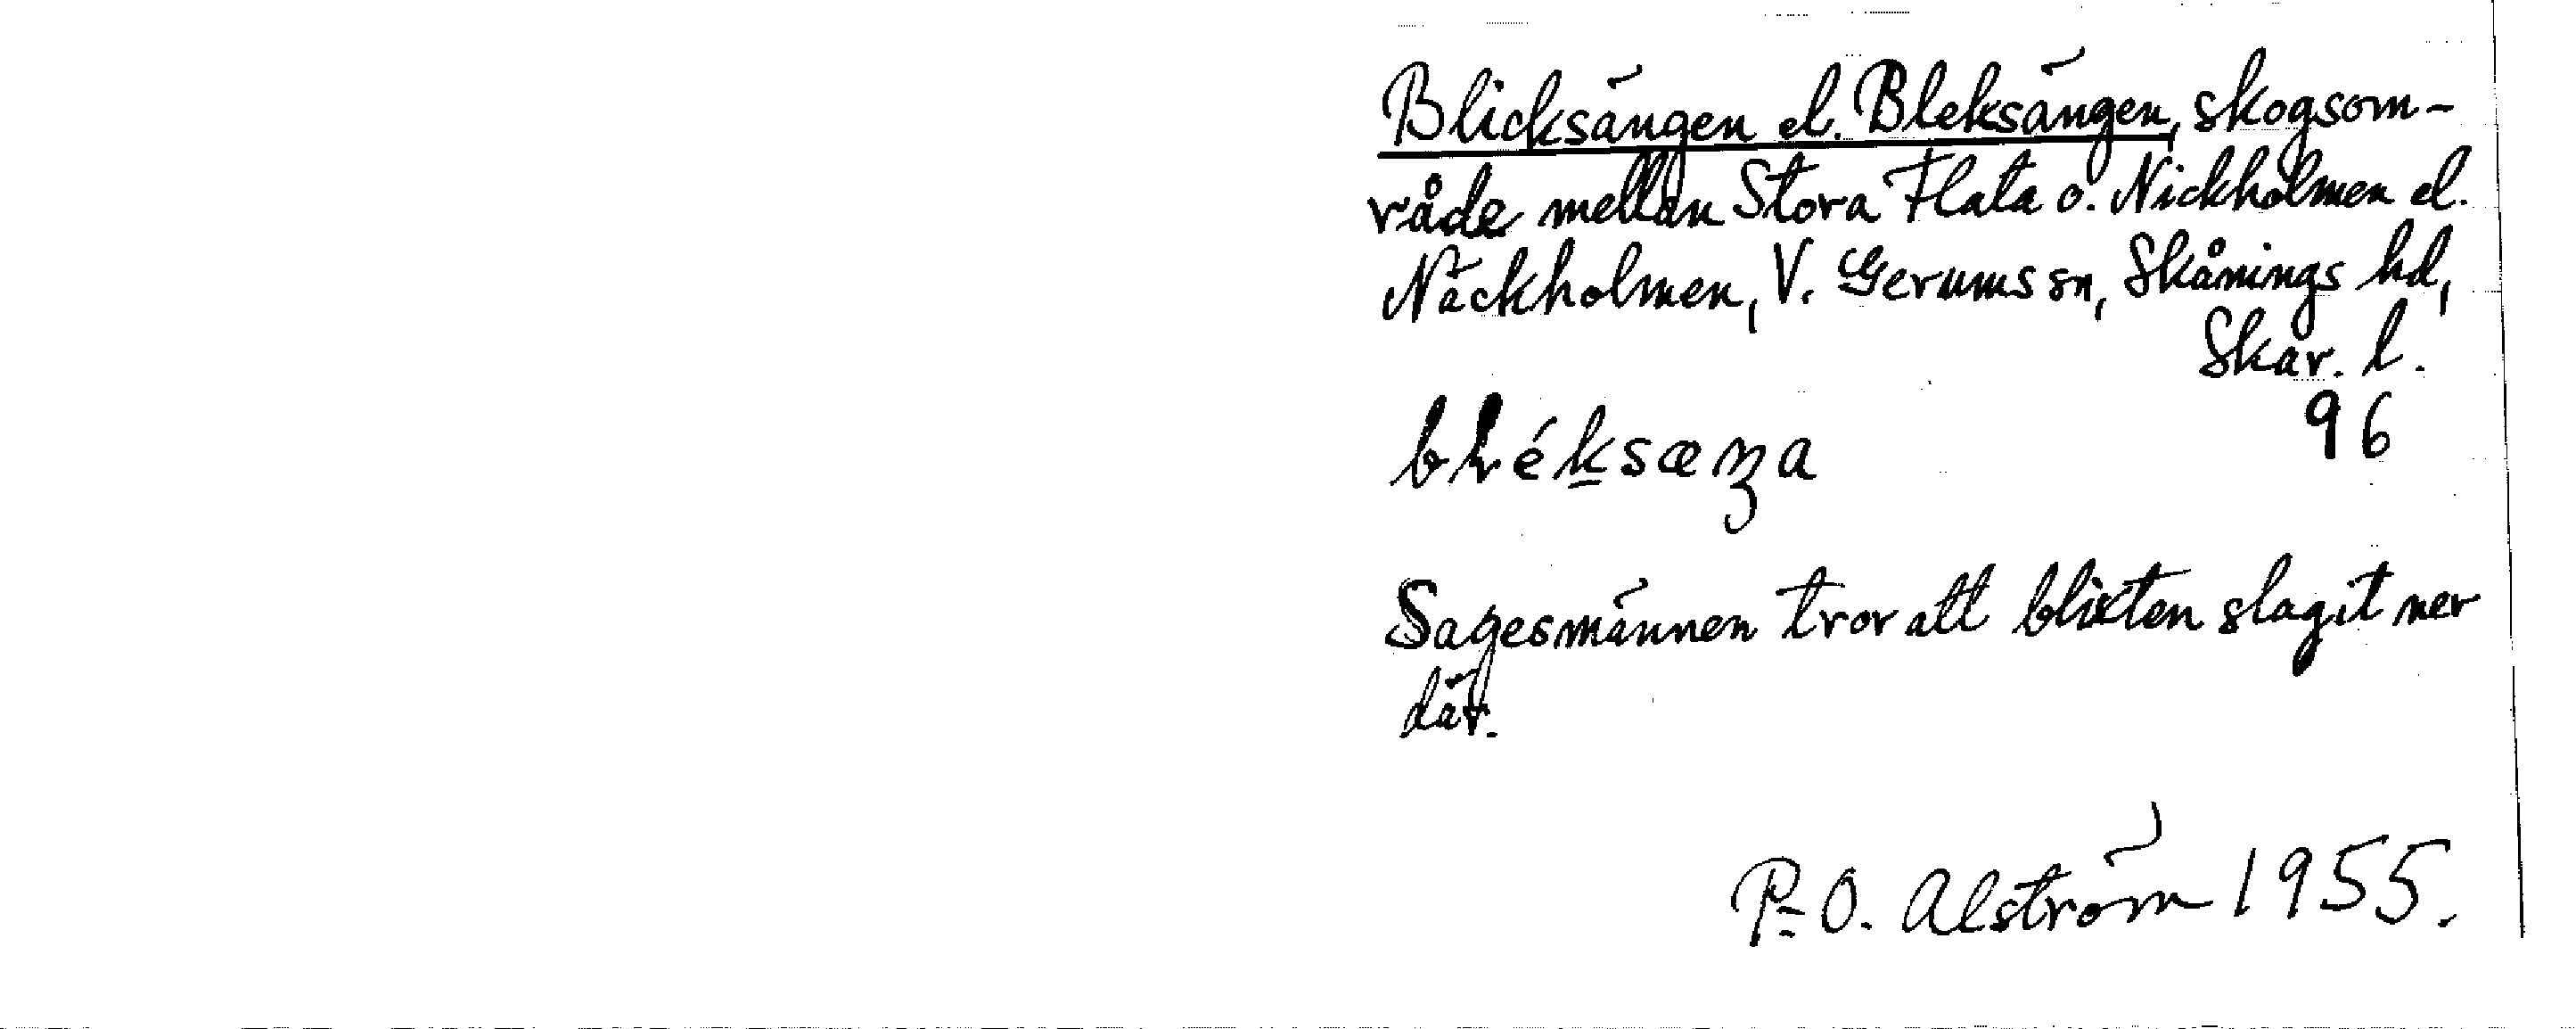 Blicksängen el. Bleksängen, skogsom-
råde mellan Stora Flata o. Nickholmen el.
Näckholmen, V. Gerums sn, Skånings hd,
Skar. l.
96
Sagesmännen tror att blixten slagit ner
där.
P-O. Alström 1955.